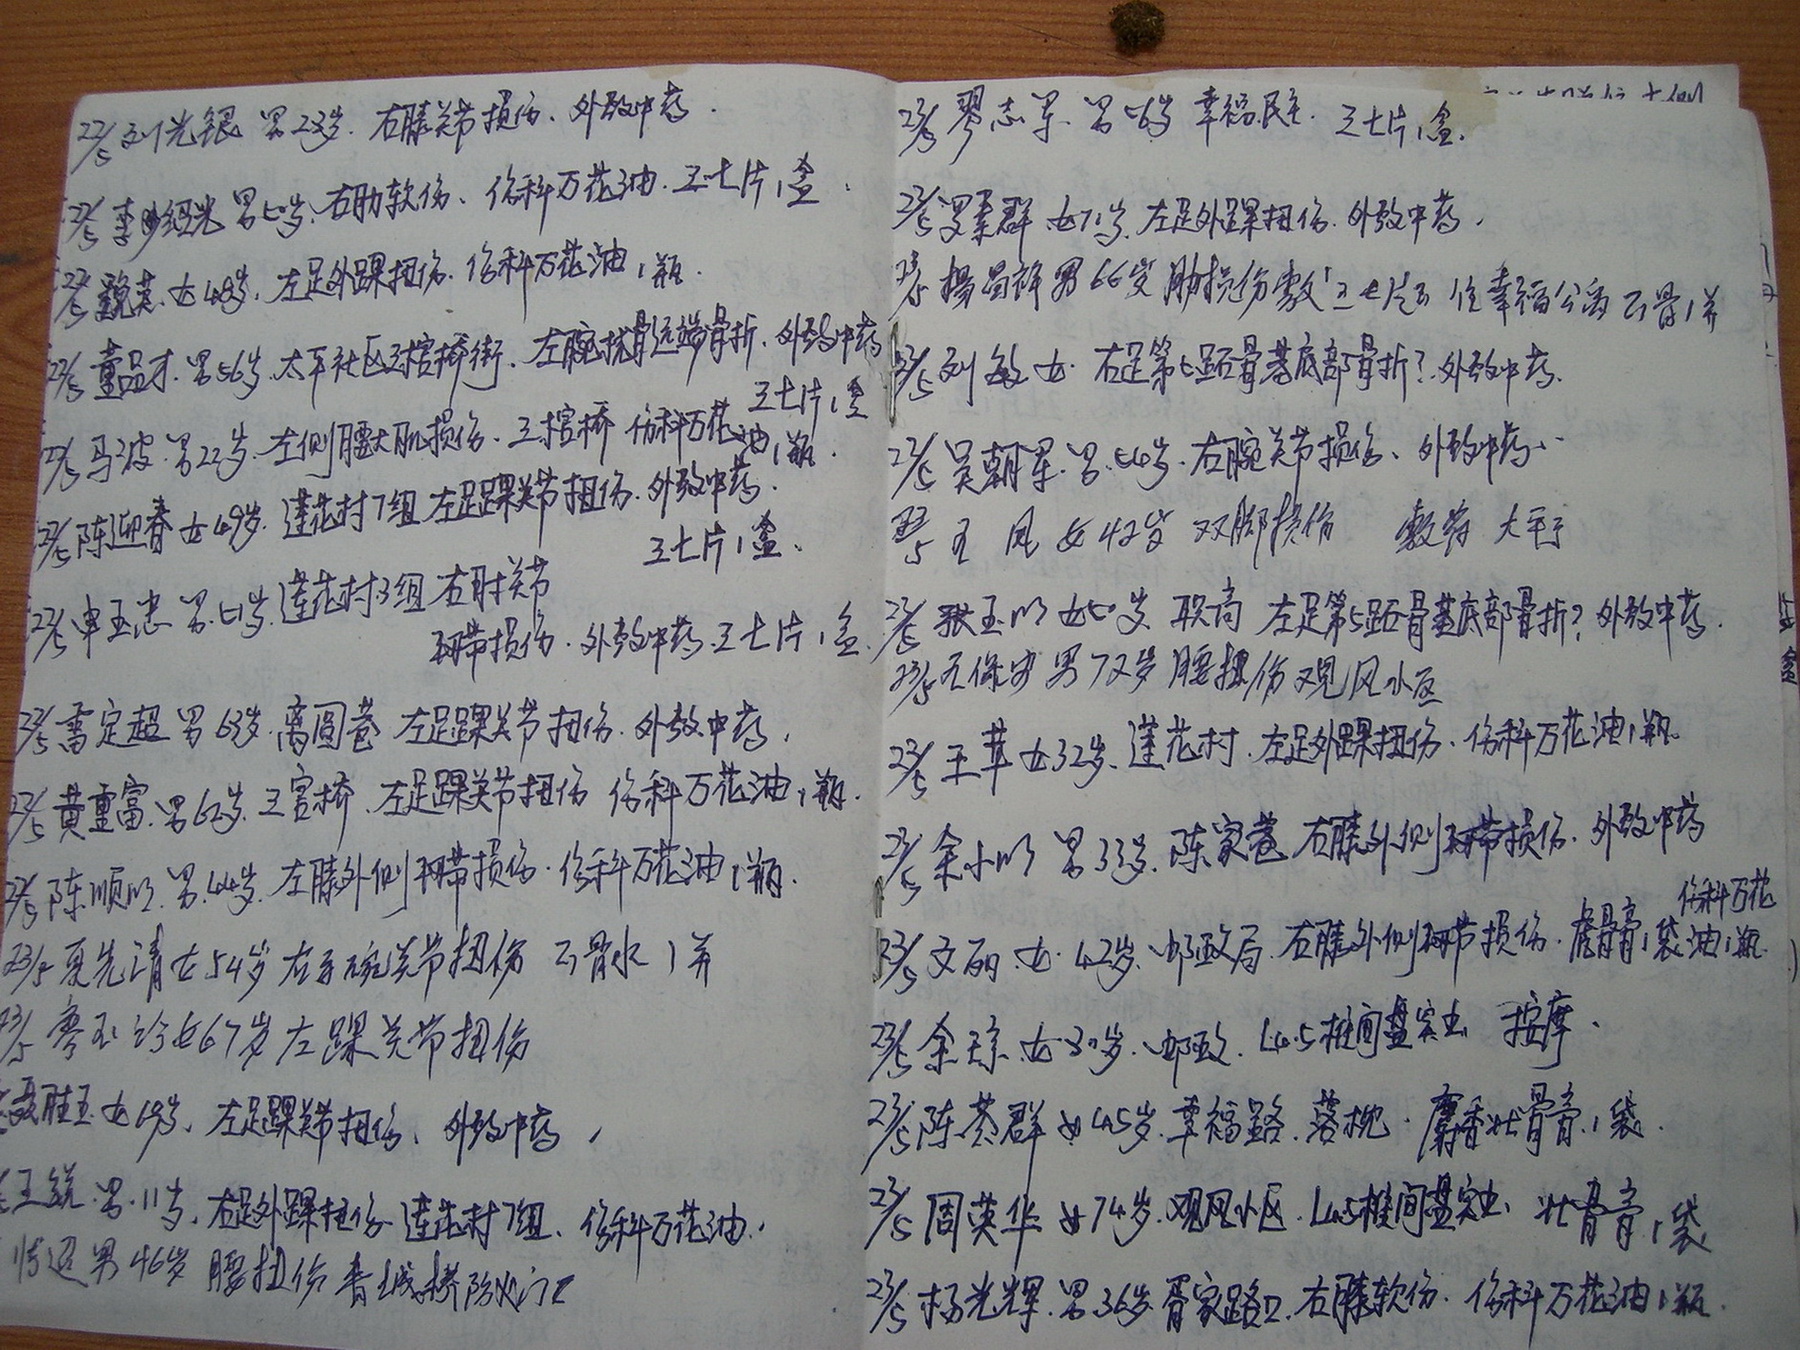 22/5 刘光银 男23岁. 右膝关节损伤. 外敷中药.
22/5 李绍光 男50岁. 右肋软伤、伤科万花油. 三七片1盒.
22/5 英. 女48岁. 左足外踝扭伤. 伤科万花油1瓶.
22/5 童品才. 男56岁. 太平社区三棺桥街. 左腕桡骨远端骨折. 外敷中药
三七片1盒
22/5 马波. 男22岁. 左侧腰大肌损伤. 三棺桥 伤科万花油1瓶.
22/5 陈迎春 女49岁. 莲花村7组 左足踝关节扭伤. 外敷中药.
三七片1盒.
22/5 申玉忠 男51岁. 莲花村3组 右肘关节
韧带损伤. 外敷中药. 三七片1盒.
22/5 雷定超 男63岁. 离圆巷 左足踝关节扭伤. 外敷中药.
22/5 黄重富. 男62岁. 三官桥. 左足踝关节扭伤 伤科万花油1瓶.
22/5 陈顺明. 男44岁. 左膝外侧韧带损伤. 伤科万花油1瓶.
23/5 夏先清 女54岁 左手腕关节扭伤 正骨水1并
23/5 廖玉珍 女67岁 左踝关节扭伤
聂胜玉 女69岁. 左足踝关节扭伤、外敷中药.
王锐. 男. 11岁. 右足外踝扭伤 莲花村7组. 伤科万花油.
男46岁 腰扭伤 青城桥
23/5 廖志军. 男56岁 幸福民主. 三七片1盒.
23/5 罗素群 女71岁. 左足外踝扭伤. 外敷中药.
23/5 楊昌祥 男66岁 肋损伤 敷 三七片 住幸福公寓 正骨1并
23/5 刘敏 女. 右足第5跖骨基底部骨折? 外敷中药.
23/5 吴朝军. 男. 54岁. 右腕关节损伤、外敷中药.
23/5 王凤 女42岁 双脚损伤 敷药 太平
23/5 张玉明 女50岁 职高 左足第5跖骨基底部骨折? 外敷中药.
23/5 王保安 男72岁 腰扭伤 观风小区
23/5 王苹 女32岁. 莲花村. 左足外踝扭伤. 伤科万花油1瓶.
23/5 余小明 男33岁. 陈家巷 右膝外侧韧带损伤. 外敷中药
23/5 文丽. 女. 42岁. 邮政局. 右膝外侧韧带损伤. 虎骨膏1袋 伤科万花油1瓶.
23/5 余琼. 女30岁. 邮政. L4.5椎间盘突出 按摩.
23/5 陈蓉群 女45岁. 幸福路. 落枕. 麝香壮骨膏1袋.
23/5 周英华 女74岁. 观风小区. L4.5椎间盘突出 壮骨膏1袋
23/5 杨光辉. 男36岁. 胥家路口. 右膝软伤. 伤科万花油1瓶.